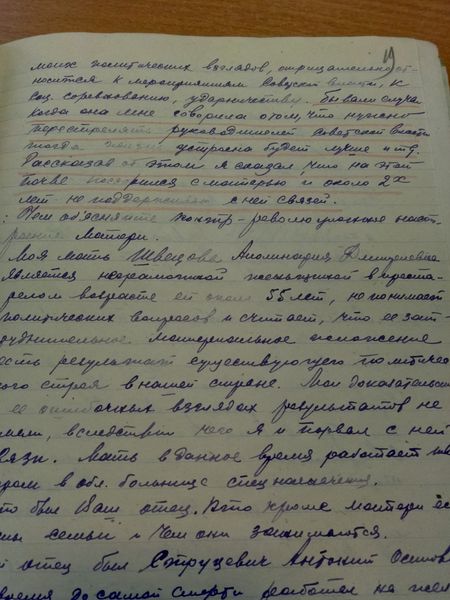 19
моих политических взглядов, отрицательно от-
носится к мероприятиям Советской власти, к
соц. соревнованию, ударничеству. Бывали случа
когда она мне говорила о том, что нужно
перестрелять руководителей Советской власти
тогда жизнь устроена будет лучше и т.д.
Рассказав об этом я сказал, что на этой
почве поссорился с матерью и около 2х
лет не поддерживаю с ней связей.
: Чем объясняете контр-революционные наст-
роения матери.
Моя мать Швецова Аполинария Дмитриевна
является неграмотной женщиной в преста-
релом возрасте ей около 55 лет, не понимает
политических вопросов и считает, что её зат-
руднительное материальное положение
есть результат существующего политичес
кого строя в нашей стране. Мои доказательств
её ошибочных взглядах результатов не
имели, вследствии чего я и порвал с ней
связи. Мать в данное время работает
ром в обл. больнице спец назначения.
то был Ваш отец. Кто кроме матери ес
семьи и чем они занимаются.
й отец был Струцевич Антоний
время до самой смерти работал на